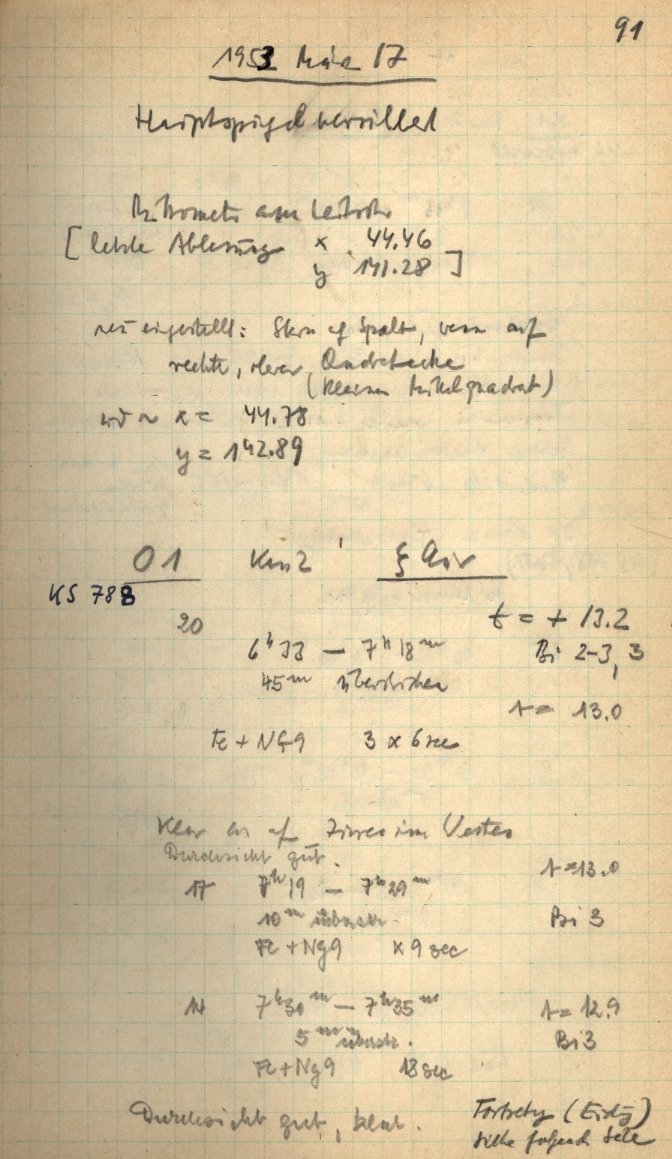 91
1953 März 17
Hauptspiegel versilbert
Mikrometer am Leitrohr
[letzte Ablesung x 44.46
y 141.28]
neu eingestellt: Stern auf Spalt, wenn auf
rechte, obere, Quadratecke
(kleines Mittelquadrat)
x = 44.78
y = 142.89
O 1 Km 2 ξ Aur
KS 788
20 t = + 13.2
6h 33 — 7h 18m Bi 2-3, 3
45m überstrichen
t = 13.0
Fe + NG9 3 x 6 sec
Klar bis auf Zirren im Westen
Durchsicht gut.
17 7h 19 — 7h 29m t = 13.0
10m überstr. Bi 3
Fe + Ng9 x 9 sec
14 7h 30m — 7h 35m t = 12.9
5m überstr. Bi 3
Fe + Ng9 18 sec
Durchsicht gut, klar.
siehe folgende Seite